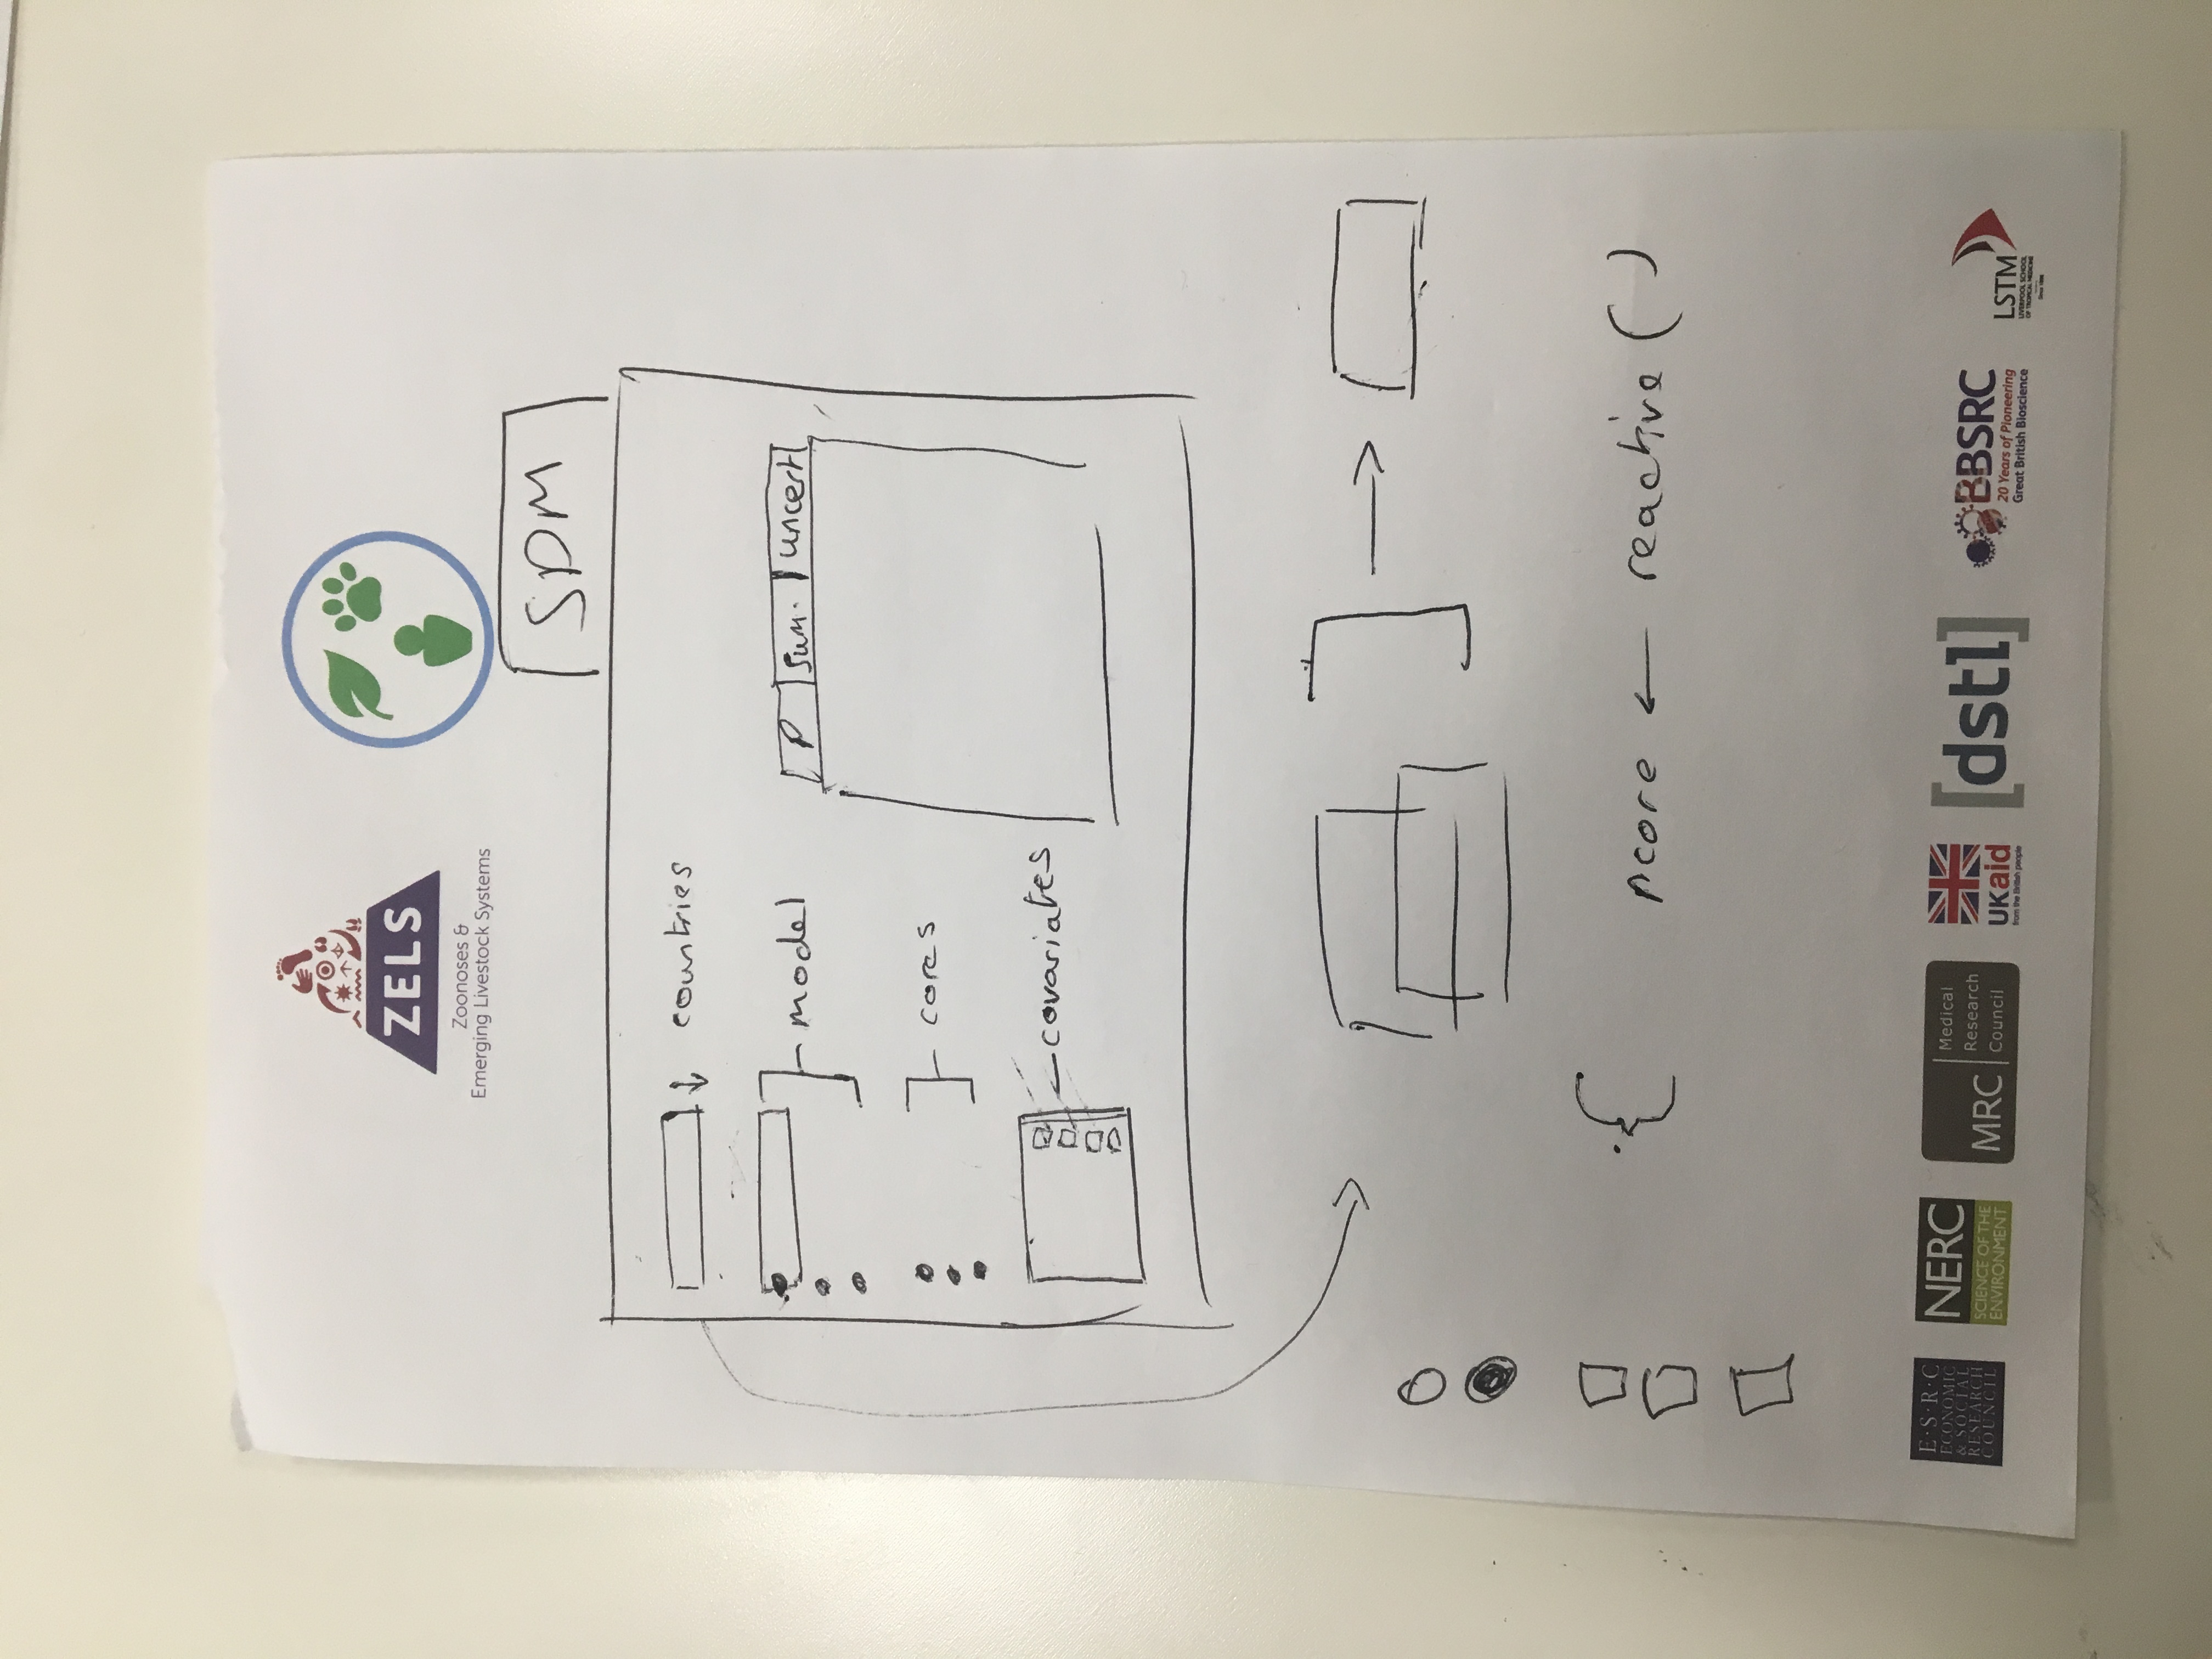 ZELS
Zoonoses &
Emerging Livestock Systems
SDM
countries
model
P sum. uncert
cores
covariates
ncore ← reactive ( )
E·S·R·C
ECONOMIC
& SOCIAL
RESEARCH
COUNCIL
NERC
SCIENCE OF THE
ENVIRONMENT
MRC
Medical
Research
Council
UKaid
from the British people
[dstl]
BBSRC
20 Years of Pioneering
Great British Bioscience
LSTM
LIVERPOOL SCHOOL
OF TROPICAL MEDICINE
Since 1898